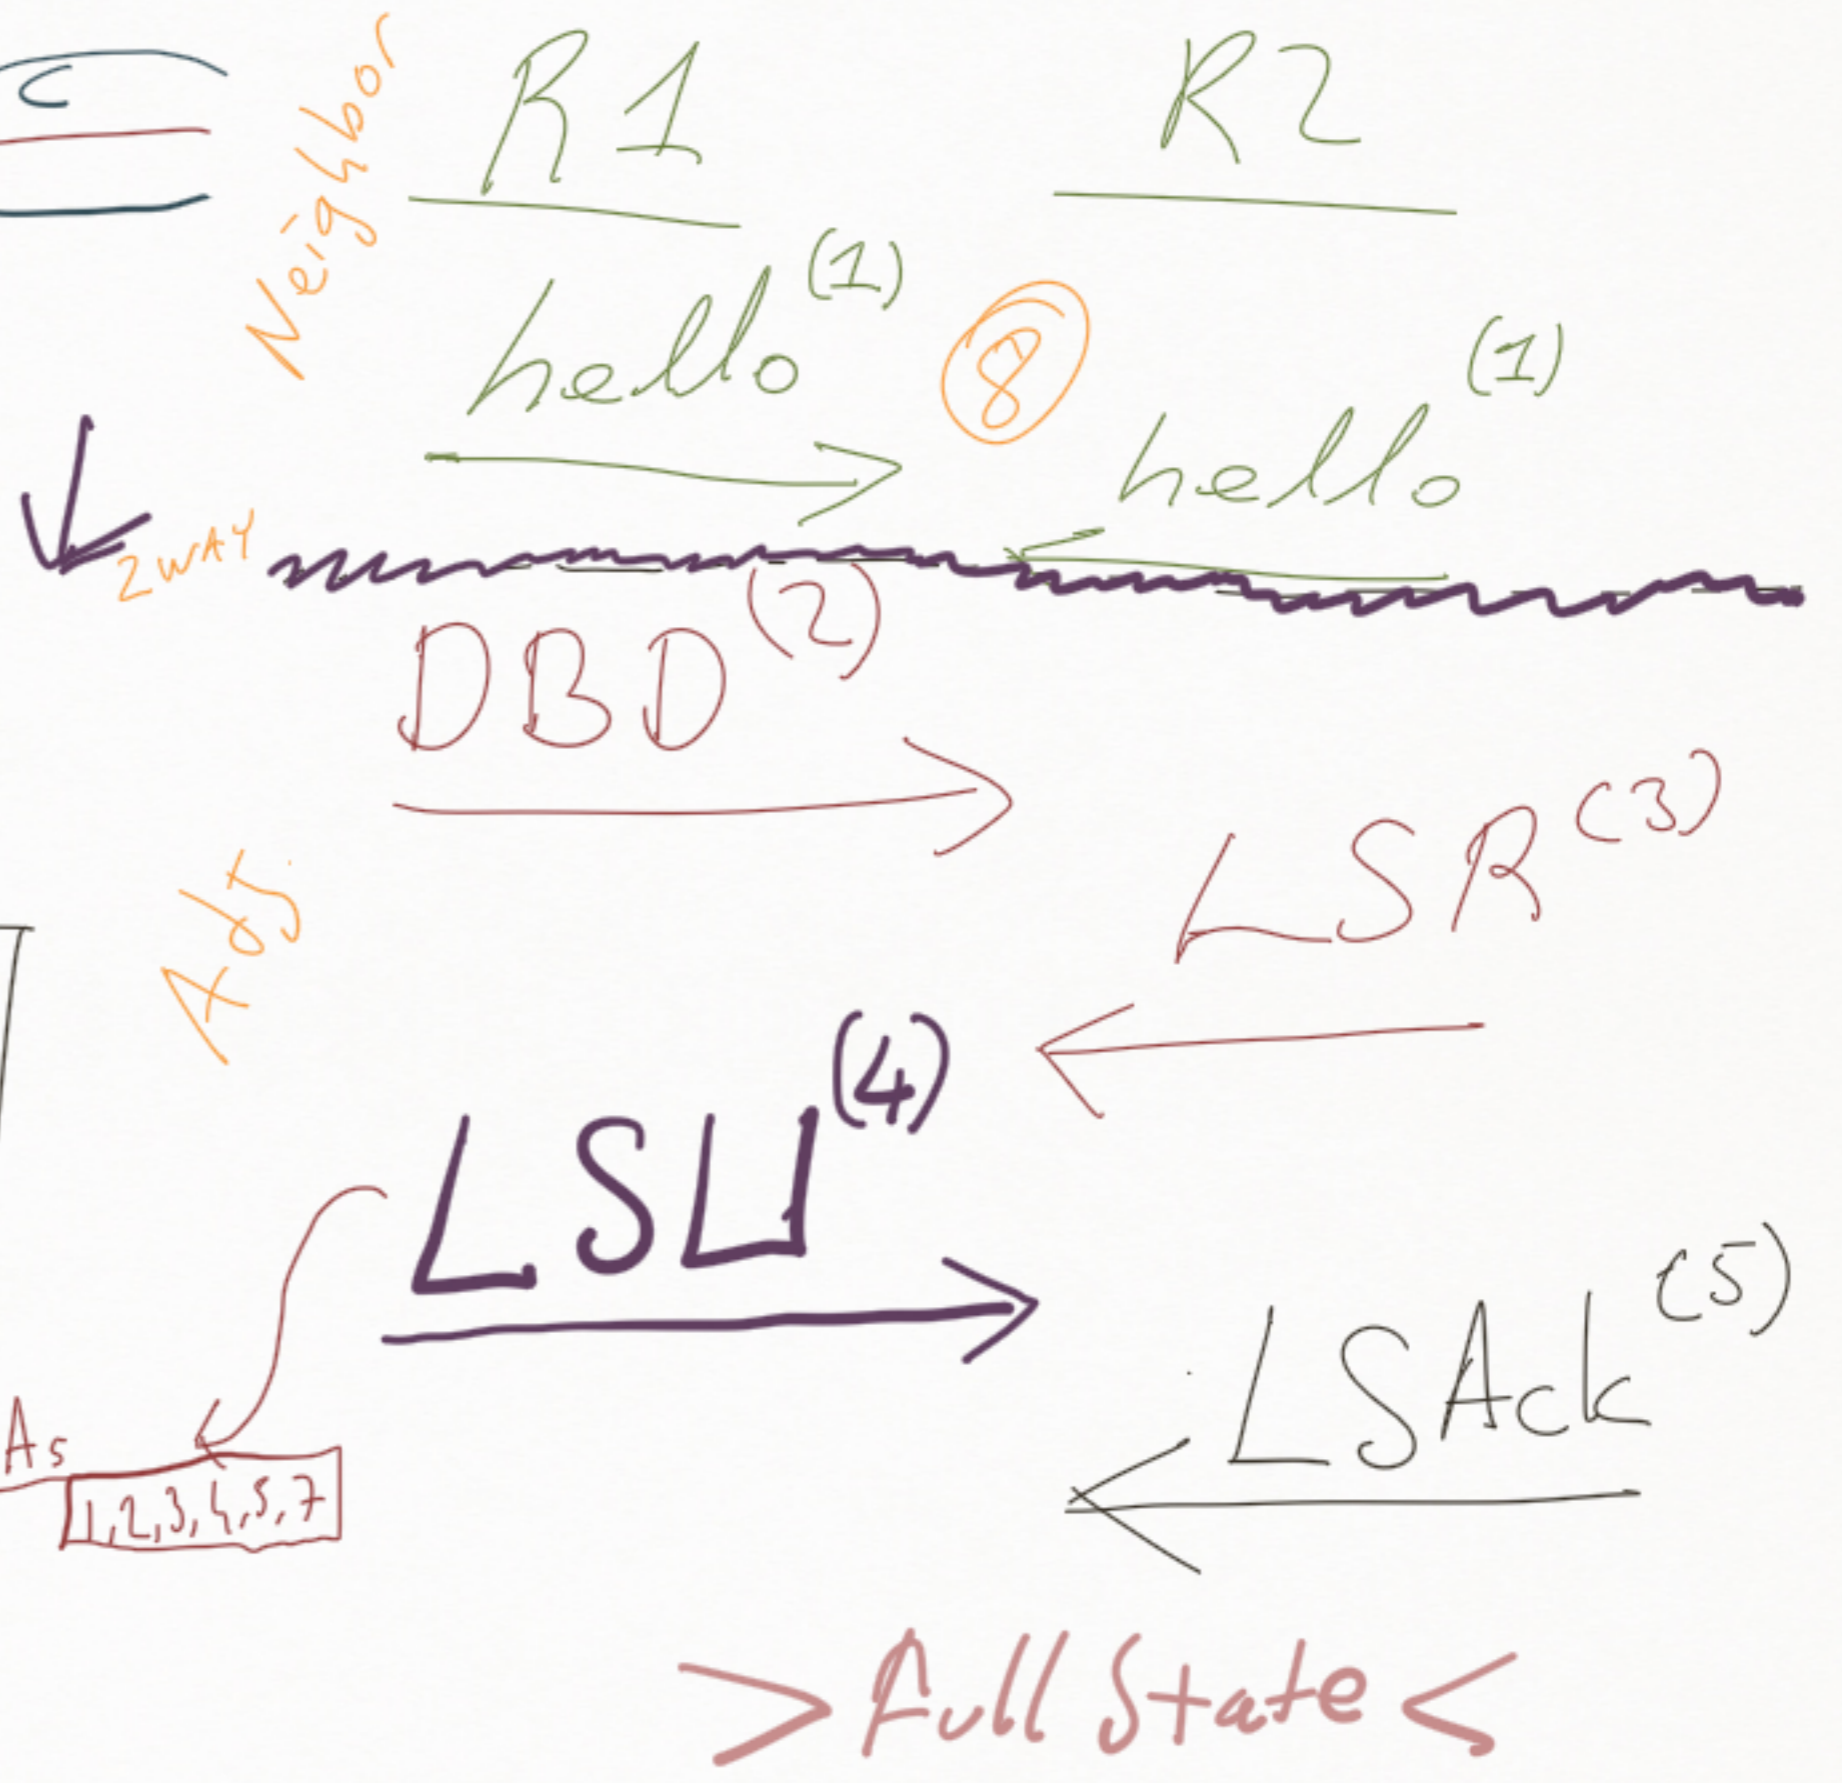 C
Neighbor
R1
R2
hello (1)
8
hello (1)
2WAY
DBD (2)
LSR (3)
Adj.
LSU (4)
LSAck (5)
As
1,2,3,4,5,7
>Full State<